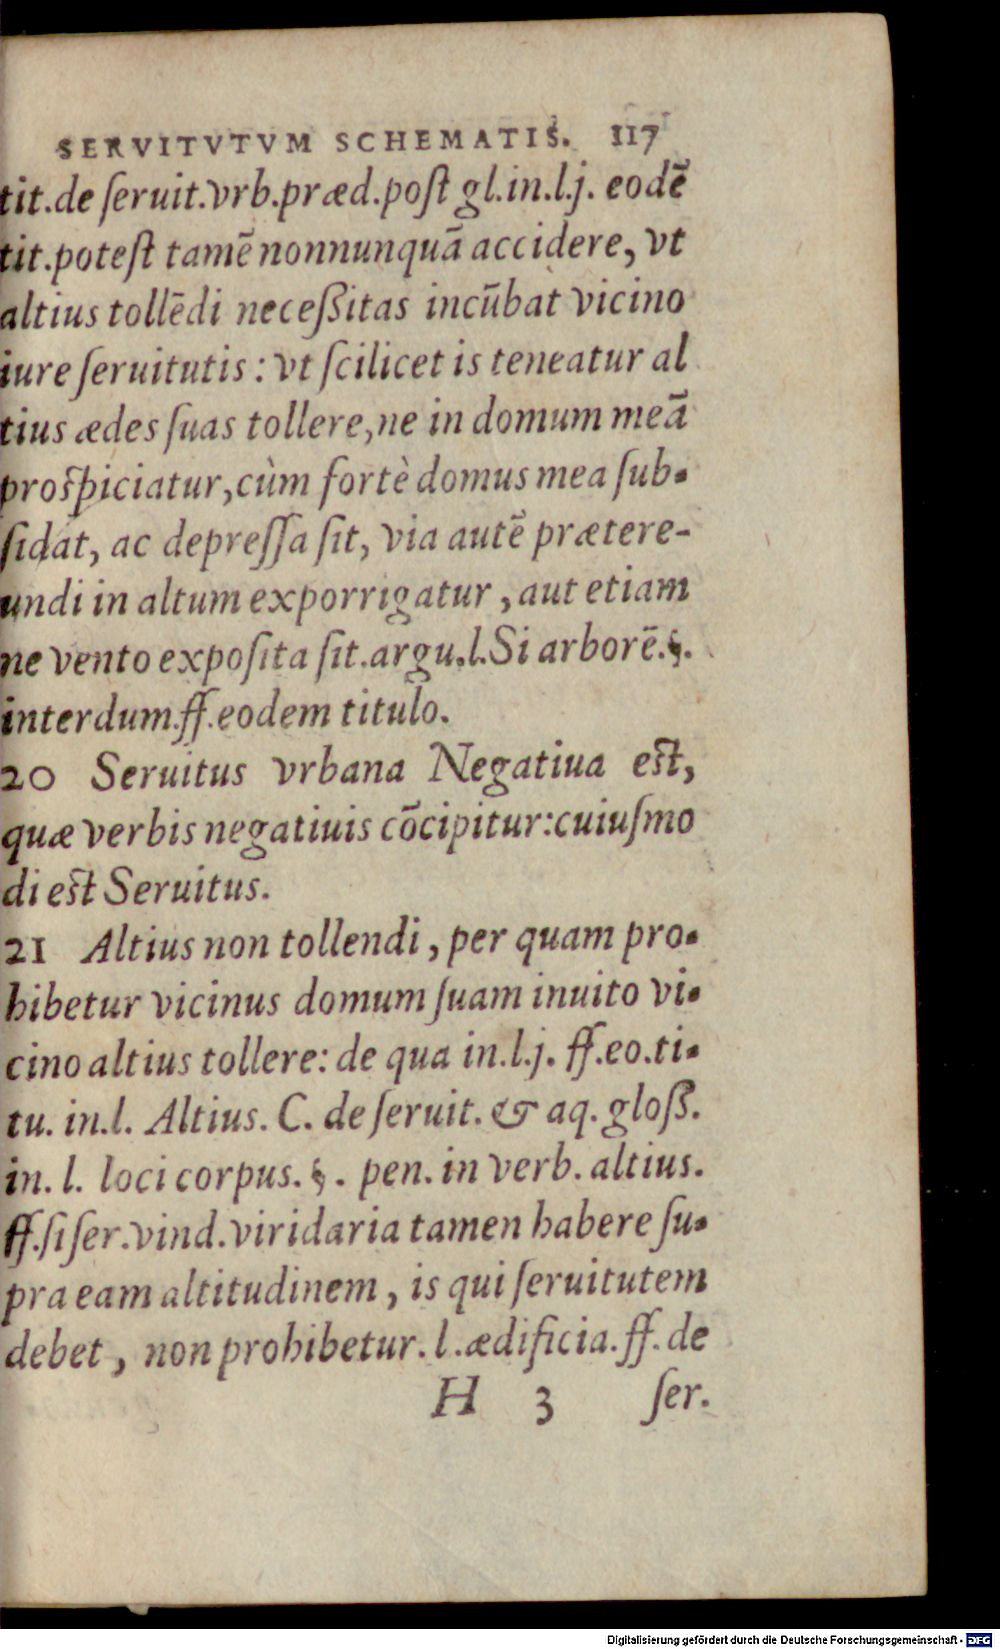 SERVITVTVM SCHEMATIS. 117
tit.de ſeruit.vrb.præd.poſt gl.in.l.j. eodē
tit.poteſt tamē nonnunquā accidere, vt
altius tollēdi neceßitas incūbat vicino
iure ſeruitutis : vt ſcilicet is teneatur al
tius ædes ſuas tollere,ne in domum meā
proſpiciatur,cùm fortè domus mea ſub-
ſidat, ac depreſſa ſit, via autē prætere-
undi in altum exporrigatur , aut etiam
ne vento expoſita ſit.argu.l.Si arborē.§.
interdum.ff.eodem titulo.
20 Seruitus vrbana Negatiua eſt,
quæ verbis negatiuis cōcipitur:cuiuſmo
di eſt Seruitus.
21 Altius non tollendi , per quam pro-
hibetur vicinus domum ſuam inuito vi-
cino altius tollere: de qua in.l.j. ff.eo.ti-
tu. in.l. Altius. C. de ſeruit. & aq. gloß.
in. l. loci corpus. §. pen. in verb. altius.
ff.ſi ſer.vind.viridaria tamen habere ſu-
pra eam altitudinem , is qui ſeruitutem
debet , non prohibetur. l .ædificia.ff. de
H 3 ſer.
Digitalisierung gefördert durch die Deutsche Forschungsgemeinschaft - DFG